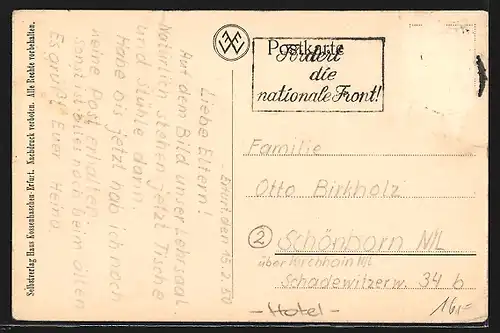 Selbstverlag Haus Kossenhaschen-Erfurt. Nachdruck verboten. Alle Rechte vorbehalten.
Postkarte
Fördert
die
nationale Front!
Erfurt den 15.2.50
Liebe Eltern!
Auf dem Bild unser Lehrsaal
Natürlich stehen jetzt Tische
und Stühle darin.
Habe bis jetzt hab ich noch
keine Post erhalten.
Sonst ist alles noch beim alten
Es grüßt Euer Heino.
Familie
Otto Birkholz
2 Schönborn N/L
über Kirchhain N/L
Schadewitzerw. 34 b
- Hotel -
16,-